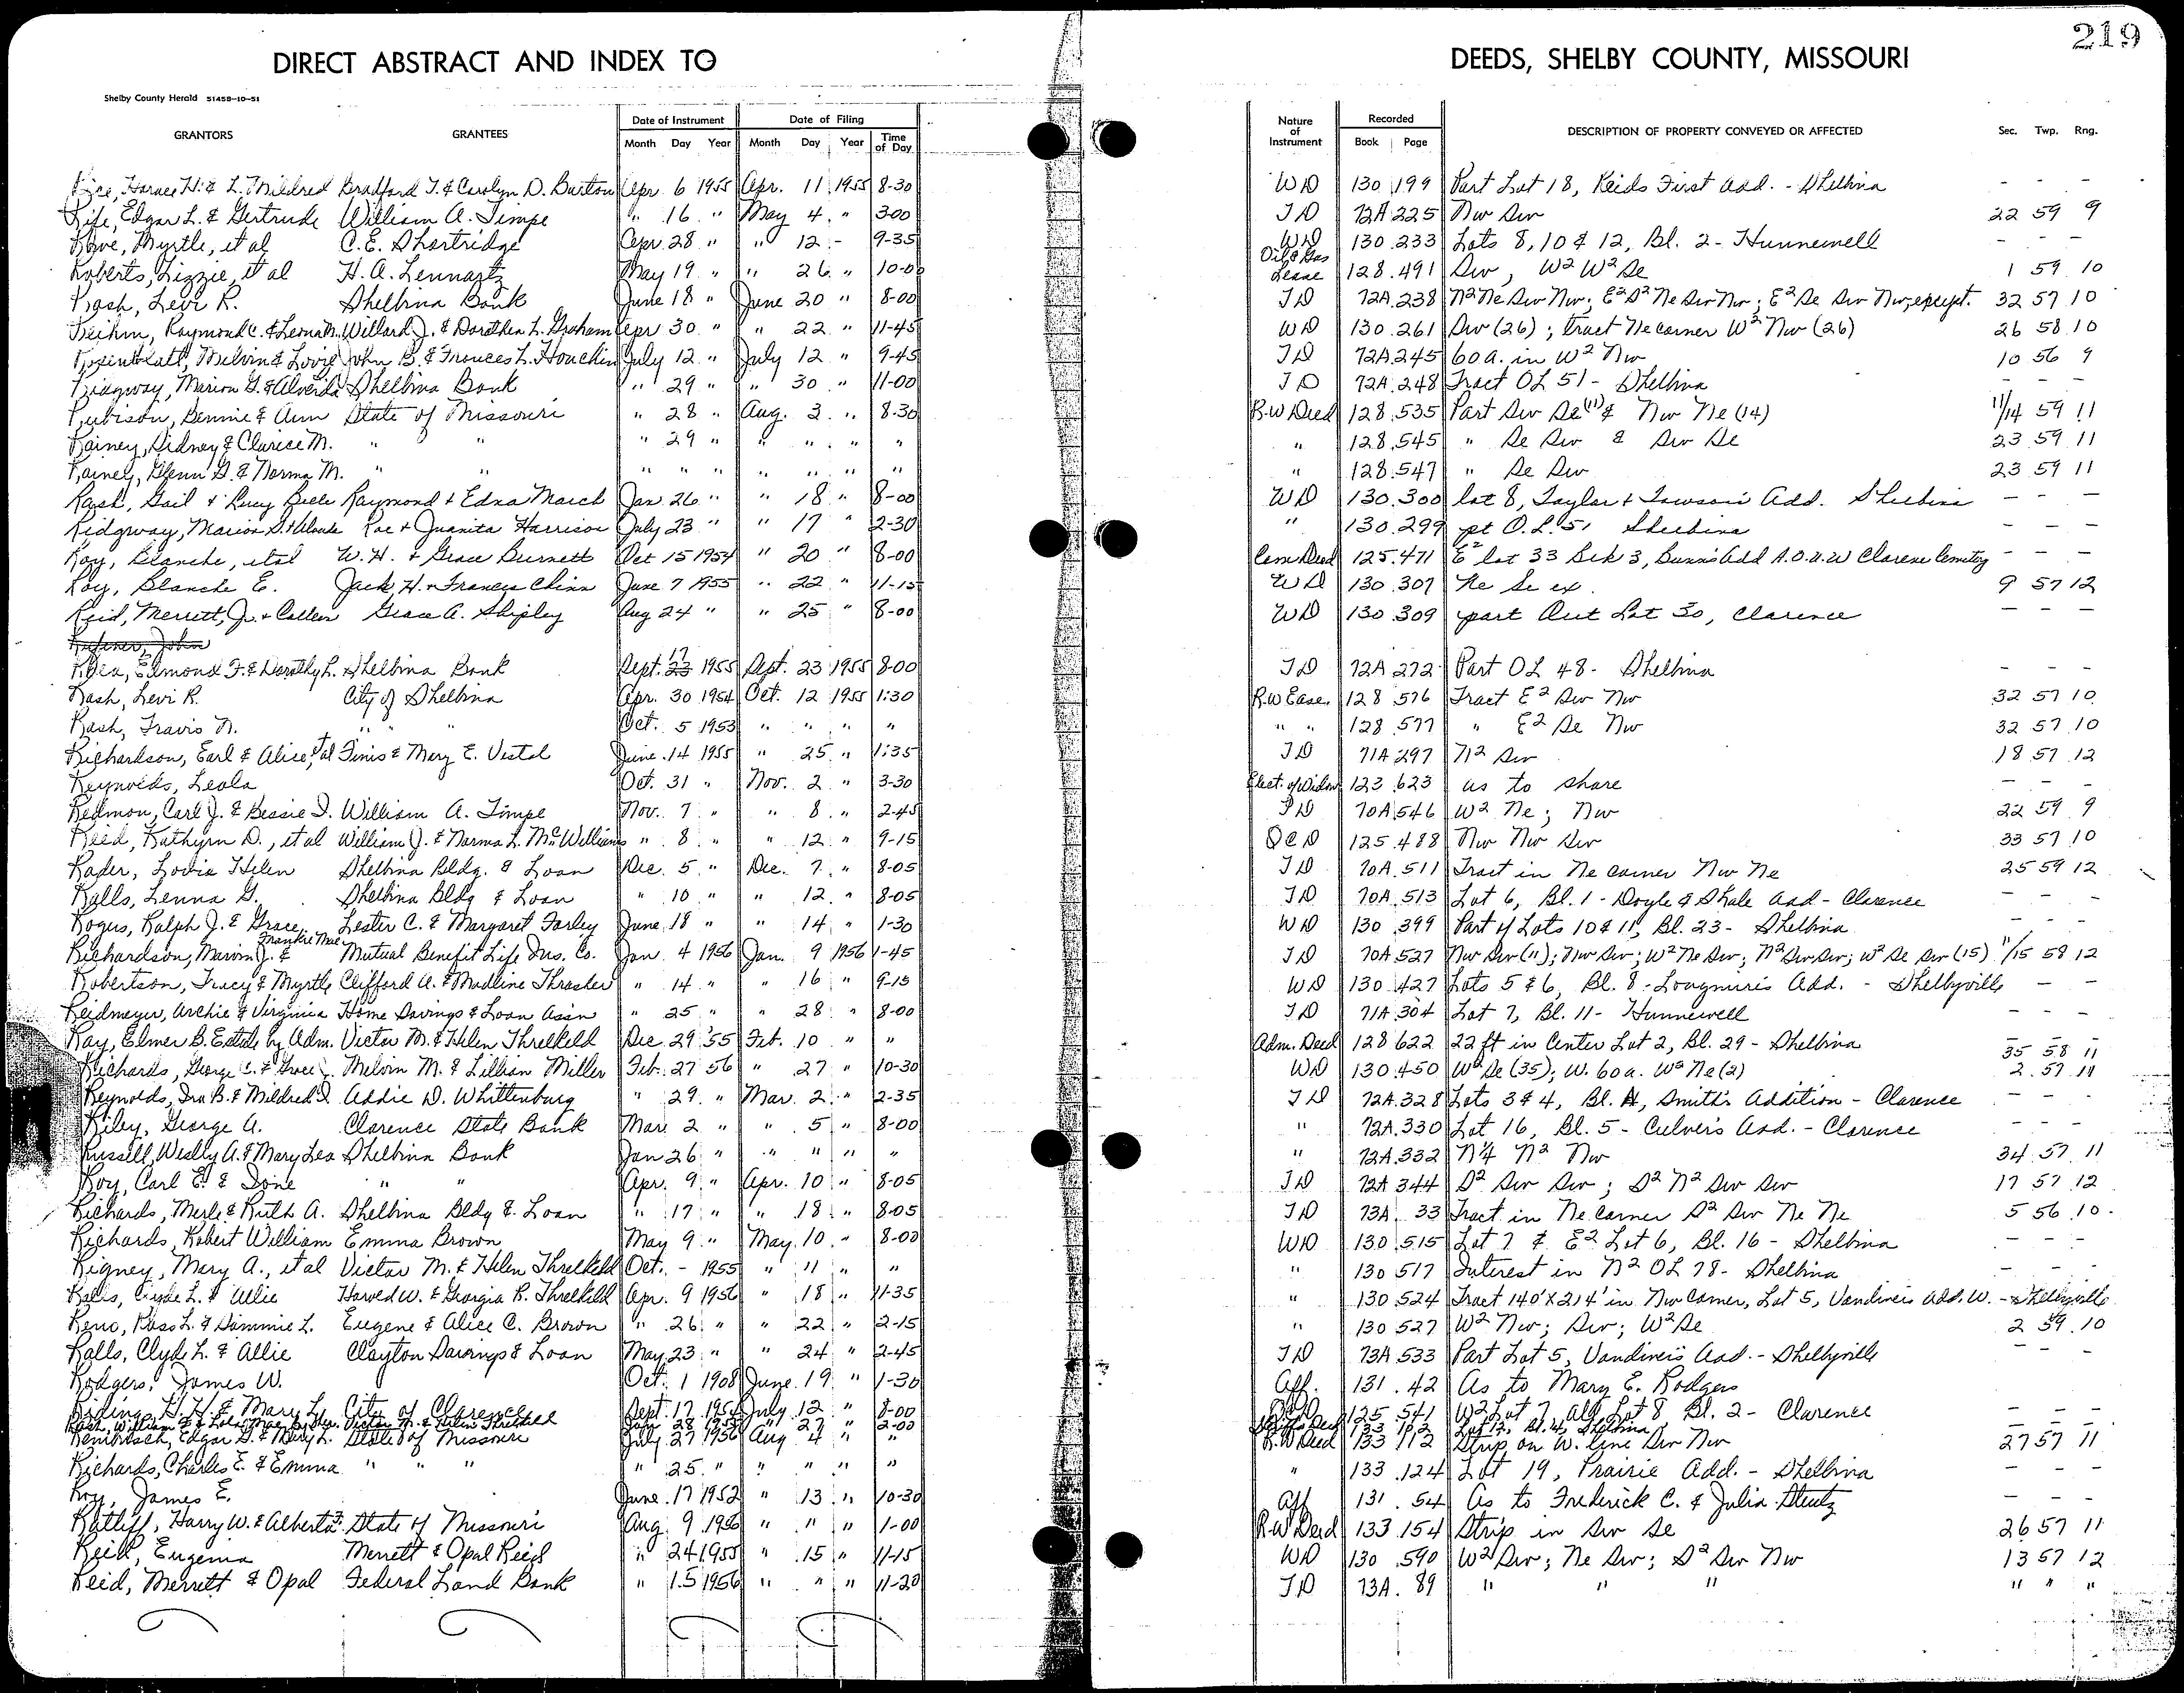 219
DIRECT ABSTRACT AND INDEX TO DEEDS, SHELBY COUNTY, MISSOURI
Shelby County Herald 51458-10-51
GRANTORS GRANTEES Date of Instrument Date of Filing Nature of Instrument Recorded DESCRIPTION OF PROPERTY CONVEYED OR AFFECTED Sec. Twp. Rng.
Month Day Year Month Day Year Time of Day Book Page
Rice, Horace H. & L. Mildred Bradford T. & Carolyn D. Burton Apr. 6 1955 Apr. 11 1955 8-30 WD 130 199 Part Lot 18, Reids First Add. - Shelbina - - -
Rife, Edgar L. & Gertrude William A. Timpe " 16 " May 4 " 3-00 TD 72A 225 Nw Sw 22 59 9
Rowe, Myrtle, et al C.E. Shortridge Apr. 28 " " 12 - 9-35 WD 130 233 Lots 8, 10 & 12, Bl. 2 - Hunnewell - - -
Roberts, Lizzie, et al H.A. Lennartz May 19 " " 26 " 10-00 Oil & Gas Lease 128 491 Sw, W2 W2 Se 1 59 10
Rash, Levi R. Shelbina Bank June 18 " June 20 " 8-00 TD 72A 238 N2 Ne Sw Nw; E2 S2 Ne Sw Nw; E2 Se Sw Nw, except. 32 57 10
Raymond C. & Leona M. Willard J. & Dorothea L. Graham Apr 30 " " 22 " 11-45 WD 130 261 Sw (26); tract Ne corner W2 Nw (26) 26 58 10
Melvin & John B. & Frances L. Houchin July 12 " July 12 " 9-45 TD 72A 245 60 a. in W2 Nw 10 56 9
Ridgway, Marion G. & Alverda Shelbina Bank " 29 " " 30 " 11-00 TD 72A 248 Tract OL 51 - Shelbina - - -
Rubison, Bennie & Ann State of Missouri " 28 " Aug. 3 " 8-30 R.W Deed 128 535 Part Sw Se (11) & Nw Ne (14) 11/14 59 11
Rainey, Sidney & Clarice M. " " " 29 " " " " " " 128 545 " Se Sw & Sw Se 23 59 11
Rainey, Glenn G. & Norma M. " " " " " " " " " " 128 547 " Se Sw 23 59 11
Rash, Gail & Lucy Belle Raymond & Edna March Jan 26 " " 18 " 8-00 WD 130 300 lot 8, Taylor & Towson's Add. Shelbina - - -
Ridgway, Marion Rae & Juanita Harrison July 23 " " 17 " 2-30 " 130 299 pt O.L. 51 Shelbina - - -
Roy, Blanche, etal W.H. & Grace Burnett Oct 15 1954 " 20 " 8-00 Cem Deed 125 471 E2 lot 33 Blk 3, Bunns Add A.O.U.W Clarence Cemetery - - -
Roy, Blanche E. Jack H. & Frances Chinn June 7 1955 " 22 " 11-15 WD 130 307 Ne Se ex. 9 57 12
Reid, Merrett, Jr. & Colleen Grace A. Shipley Aug 24 " " 25 " 8-00 WD 130 309 part Out Lot 30, Clarence - - -
John
Rhea, Edmond F. & Dorothy L. Shelbina Bank Sept. 17 23 1955 Sept. 23 1955 8-00 TD 72A 272 Part OL 48 - Shelbina - - -
Rash, Levi R. City of Shelbina Apr. 30 1954 Oct. 12 1955 1:30 R.W Ease. 128 576 Tract E2 Sw Nw 32 57 10
Rash, Travis N. " " Oct. 5 1953 " " " " " " 128 577 " E2 Se Nw 32 57 10
Richardson, Earl & Alice, et al Finis & Mary E. Vestal June 14 1955 " 25 " 1:35 TD 71A 297 N2 Sw 18 57 12
Reynolds, Leola Oct. 31 " Nov. 2 " 3-30 Elect. of Widow 123 623 as to share - - -
Redmon, Carl J. & Bessie I. William A. Timpe Nov. 7 " " 8 " 2-45 TD 70A 546 W2 Ne; Nw 22 59 9
Reid, Kathryn D., et al William J. & Norma L. McWilliams " 8 " " 12 " 9-15 QCD 125 488 Nw Nw Sw 33 57 10
Rader, Lovia Helen Shelbina Bldg. & Loan Dec. 5 " Dec. 7 " 8-05 TD 70A 511 Tract in Ne corner Nw Ne 25 59 12
Ralls, Lenna G. Shelbina Bldg & Loan " 10 " " 12 " 8-05 TD 70A 513 Lot 6, Bl. 1 - Doyle & Shale Add - Clarence - - -
Rogus, Ralph J. & Grace Lester C. & Margaret Farley June 18 " " 14 " 1-30 WD 130 399 Part of Lots 10 & 11, Bl. 23 - Shelbina - - -
Richardson, Marvin J. & Frankie Mae Mutual Benefit Life Ins. Co. Jan. 4 1956 Jan. 9 1956 1-45 TD 70A 527 Nw Sw (11); Nw Sw; W2 Ne Sw; N2 Sw Sw; W2 Se Sw (15) 11/15 58 12
Robertson, Tracy & Myrtle Clifford A. & Madline Thrasher " 14 " " 16 " 9-15 WD 130 427 Lots 5 & 6, Bl. 8 - Longmire's Add. - Shelbyville - -
Reidmeyer, Archie & Virginia Home Savings & Loan Assn " 25 " " 28 " 8-00 TD 71A 304 Lot 7, Bl. 11 - Hunnewell - - -
Ray, Elmer B. Estate by Adm. Victor M. & Helen Threlkeld Dec. 29 '55 Feb. 10 " " Adm. Deed 128 622 22 ft in Center Lot 2, Bl. 29 - Shelbina - - -
Richards, George C. & Grace J. Melvin M. & Lillian Miller Feb. 27 56 " 27 " 10-30 WD 130 450 W2 Se (35); W. 60 a. W2 Ne (2) 35 58 11
2 57 11
Reynolds, Ira B. & Mildred I. Addie D. Whittenburg " 29 " Mar. 2 " 2-35 TD 72A 328 Lots 3 & 4, Bl. A, Smith's Addition - Clarence - - -
Riley, George A. Clarence State Bank Mar. 2 " " 5 " 8-00 " 72A 330 Lot 16, Bl. 5 - Culver's Add. - Clarence - - -
Russell, Weslly A. & Mary Lea Shelbina Bank Jan 26 " " " " " " 72A 332 N1/4 N2 Nw 34 57 11
Roy, Carl E. & Ione " " Apr. 9 " Apr. 10 " 8-05 TD 72A 344 S2 Sw Sw; S2 N2 Sw Sw 17 57 12
Richards, Merle & Ruth A. Shelbina Bldg & Loan " 17 " " 18 " 8-05 TD 73A 33 Tract in Ne corner S2 Sw Ne Ne 5 56 10
Richards, Robert William Emma Brown May 9 " May 10 " 8-00 WD 130 515 Lot 7 & E2 Lot 6, Bl. 16 - Shelbina - - -
Rigney, Mary A., et al Victor M. & Helen Threlkeld Oct. - 1955 " 11 " " " 130 517 Interest in N2 OL 78 - Shelbina - - -
Ralls, Clyde L. & Allie Harved W. & Georgia R. Threlkeld Apr. 9 1956 " 18 " 11-35 " 130 524 Tract 140' X 214' in Nw Corner, Lot 5, Vandiver's Add. W. - Shelbyville
Reno, Ross L. & Simmie L. Eugene & Alice C. Brown " 26 " " 22 " 2-15 " 130 527 W2 Nw; Sw; W2 Se 2 59 10
Ralls, Clyde L. & Allie Clayton Savings & Loan May 23 " " 24 " 2-45 TD 73A 533 Part Lot 5, Vandiver's Add. - Shelbyville - - -
Rodgers, James W. Oct. 1 1908 June 19 " 1-30 Aff. 131 42 As to Mary E. Rodgers
H.H. & Mary L. City of Clarence Sept. 17 1954 July 12 " 8-00 125 541 W2 Lot 7, all Lot 8, Bl. 2 - Clarence - - -
Rash, William Victor M. & Helen Threlkeld 28 " 27 " 2-00 133 Shelbina - - -
Edgar G. & Mary L. State of Missouri July 27 1956 Aug 4 " " R.W Deed 133 112 Strip on W. line Sw Nw 27 57 11
Richards, Charles E. & Emma " " " " 25 " " " " " " 133 124 Lot 19, Prairie Add. - Shelbina - - -
Roy, James E. June 17 1952 " 13 " 10-30 Aff 131 54 As to Frederick C. & Julia Stutz - - -
Ratliff, Harry W. & Alberta F. State of Missouri Aug. 9 1956 " " " 1-00 R.W Deed 133 154 Strip in Sw Se 26 57 11
Reid, Eugenia Merrett & Opal Reid " 24 1955 " 15 " 11-15 WD 130 590 W2 Sw; Ne Sw; S2 Sw Nw 13 57 12
Reid, Merrett & Opal Federal Land Bank " 15 1956 " " " 11-20 TD 73A 89 " " " " " "